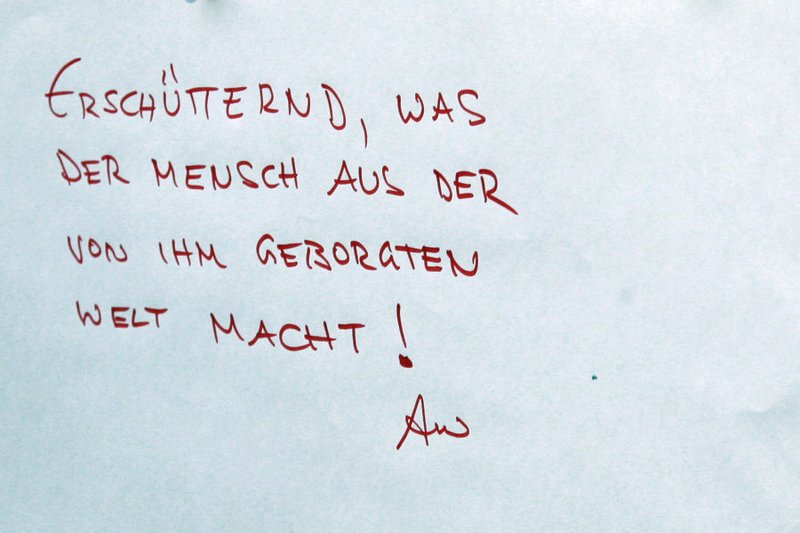 ERSCHÜTTERND, WAS
DER MENSCH AUS DER
VON IHM GEBORGTEN
WELT MACHT!